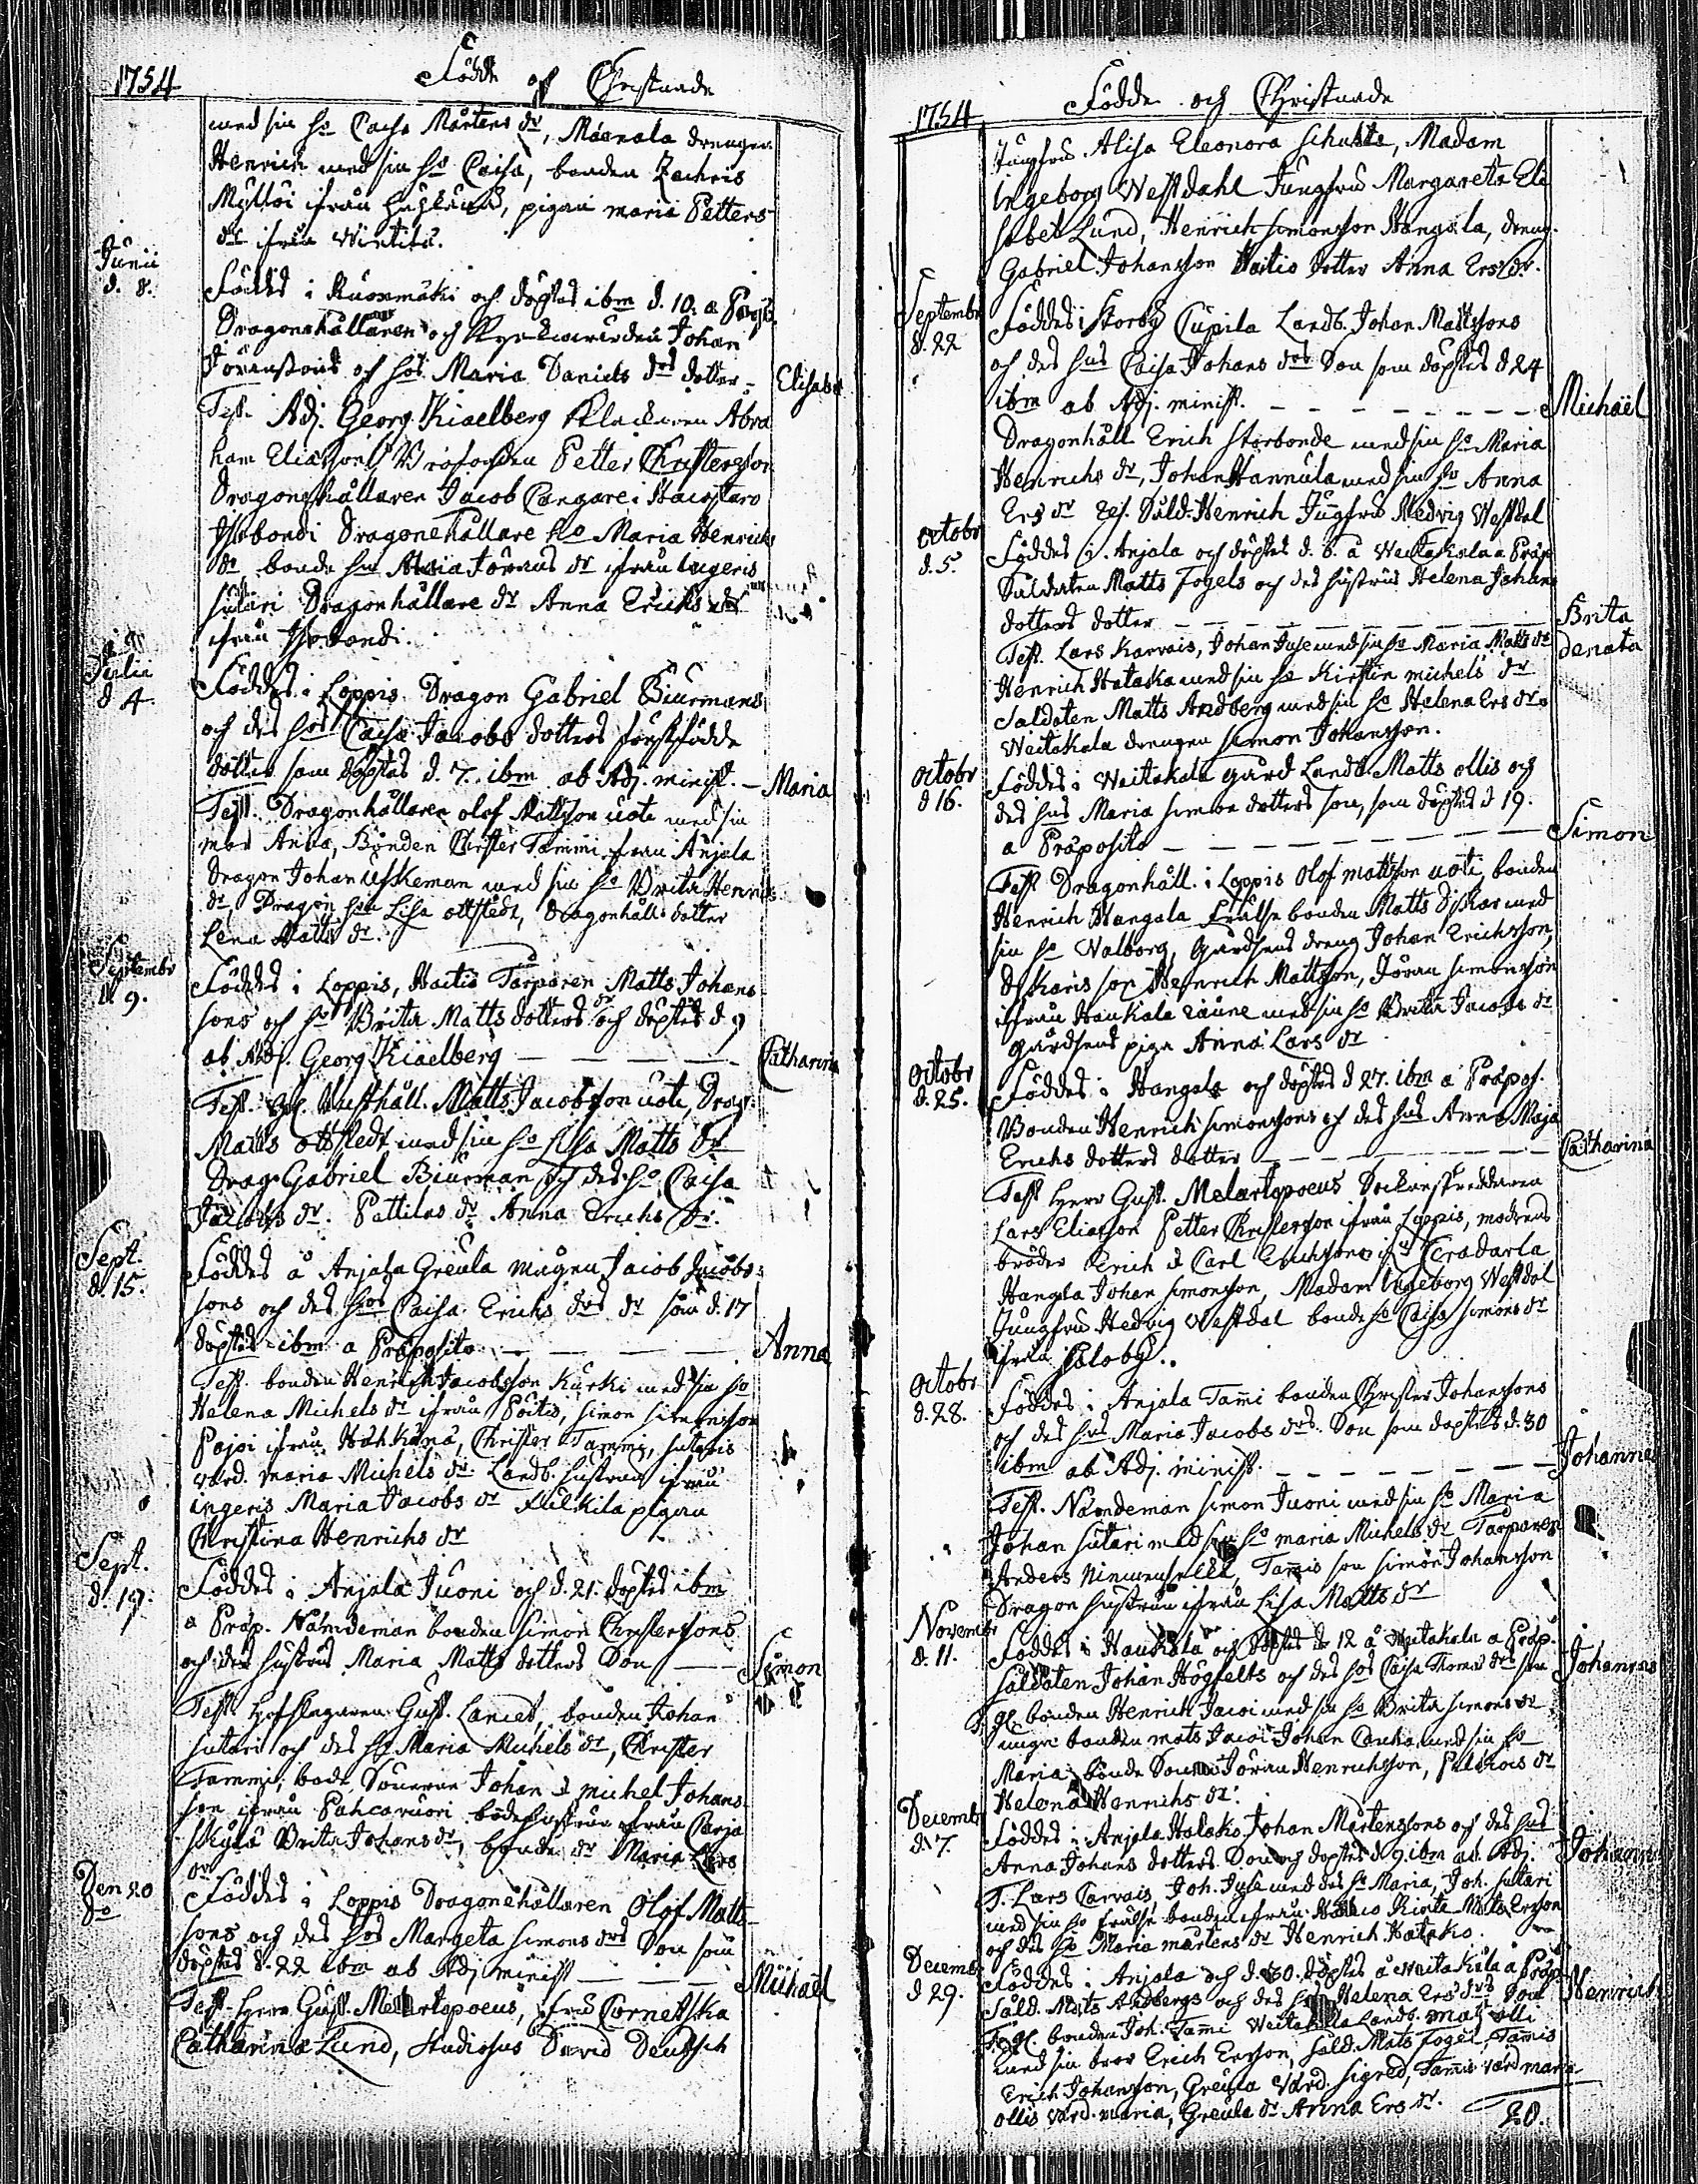 1754
Födde och Christnade
med sin ho Caisa Mårtens dr, drengen
Henrich med sin ho Caisa, bonden Zachris
Mylloi ifrån, pigan maria Petters
dr ifrån
Junii
d. 8.
Föddes i Kuoxmäki och döptes ibm d. 10. a
Dragonehållaren och Kyrkiowärden Johan
Göranssons och hos Maria Daniels drs dotter - Elisabe
Test. Adj. Georg Kiaelberg klockaren Abra
ham Eliasson, Petter Christersson
Dragonehållaren Jacob Cangare i
Isobondi Dragonehållare ho Maria Henrichs
dr bonde ho Görans dr ifrån ingeris
sutari Dragonhållare dr Anna Erichs
ifrån Isobondi.
Julii
d 4.
Föddes i Loppis Dragon Gabriel Biurmans
och des hos Caisa Jacobs dotters förstfödde
dotter som döptes d. 7. ibm ab Adj. minist. - Maria
Test. Dragonhållaren olof Mattsson uoti med sin
mor Anna, Bonden Christer Tammi ifrån Anjala
Dragon Johan med sin ho Brita Henrichs
dr, Dragon hu Lisa ottstedt, Dragonhåll. dotter
Lena Matts dr.
Septembr
d 9.
Föddes i Loppis, Haitis Torparen Matts Johans
sons och ho Brita Matts dotters dr och döptes d 9
ab Adj. Georg Kiaelberg — — — — Catharina
Test. Rusthåll. Matts Jacobsson uoti, Drag.
Matts ottstedt med sin ho Lisa Matts dr
Drag. Gabriel Biurman och des ho Caisa
Jacobs dr. Pattilas dr Anna Erichs dr.
Sept.
d. 15.
Föddes å Anjala Greula mågen Jacob Jacobs-
sons och des hos Caisa Erichs drs dr som d. 17
döptes ibm a Præposito — — — — Anna
Test. bonden Henrich Jacobsson Kurki med sin ho
Helena Michels dr ifrån Poitis, Simon Simonsson
Pojoi ifrån, Christer Tammi, sutaris
värd. maria Michels dr Landb. hustrun ifrån
ingeris Maria Jacobs dr pigan
Christina Henrichs dr
Sept.
d. 19.
Föddes i Anjala Juoni och d. 21. döptes ibm
a Præp. Nämdeman bonden Simon Christerssons
och des hustrus Maria Matts dotters Son — — Simon
Test. Hofslagaren Gust. Lanced, bonden Johan
sutari och des ho Maria Michels dr, Christer
Tammi, bode Sönerne Johan & michel Johans
son ifrån Pahcavuori bode hustrun ifrån
Brita Johans dr, bonde dr Maria Lars
dr
Den 20
do
Föddes i Loppis Dragonehållaren Olof Matts-
sons och des hos Margeta Simons drs Son som
döptes d. 22 ibm ab Adj minist — — — Michael
Test. Herr Gust. Melartopoeus, fru Cornetska
Catharina Lund, Studiosus David Deutsch
1754
Födde och Christnade
Jungfru Alisa Eleonora Schults, Madam
Ingeborg Westdahl Jungfru Margareta Eli
sabet Lund, Henrich Simonsson Hangala, dreng
Gabriel Johansson Haitis dotter Anna Ers dr.
Septembr
d. 22
Föddes i Storby Cupila Landb. Johan Mattssons
och des hus Caisa Johans drs Son som döptes d 24
ibm ab Adj. minist. — — — — Michael
Dragonhåll Erich storbonde med sin ho Maria
Henrichs dr, Johan Hannula med sin ho Anna
Ers dr Sold. Henrich Jungfru Hedvig Westdal
octobr
d. 5.
Föddes i Anjala och döptes d. 6. å Weitakala a Præp.
Soldaten Matts Fogels och des hustrus Helena Johans
dotters dotter — — — — Brita
denata
Test. Lars Karvais, Johan Juse med sin ho Maria Matts dr
Henrich Hataka med sin ho Kirstin michels dr
Soldaten Matts Andberg med sin ho Helena Ers dr
Weitakala drengen Simon Johansson.
octobr
d 16.
Föddes i Weitakala gård Landb. Matts ollis och
des hus Maria Simons dotters son, som döptes d 19.
a Præposito — — — — Simon
Test Dragonhåll. i Loppis Olof mattsson uoti, bonden
Henrich Hangala Frälse bonden Matts Diskar med
sin ho Walborg, gårdsens dreng Johan Erichsson,
Diskaris son Henrich Mattsson, Jöran Simonsson
ifrån Haukala med sin ho Brita Jacobs dr
gårdsens piga Anna Lars dr
octobr
d. 25.
Föddes i Hangala och döptes d 27. ibm a Præpos.
Bonden Henrich Simonssons och des hus Anna Maja
Erichs dotters dotter — — — — Catharina
Test Herr Gust. Melartopoeus Sockenskreddaren
Lars Eliasson Petter Christersson ifrån Loppis, modrens
bröder Erich & Carl Erichssons
Hangala Johan Simonsson, Madam Ingeborg Westdal
Jungfru Hedvig Westdal bonde ho Caisa Simons dr
ifrån Saloby..
octobr
d. 28.
Föddes i Anjala Tam̄i bonden Christer Johanssons
och des hus Maria Jacobs drs. Son som döptes d. 30
ibm ab Adj. minist. — — — — Johannes
Test. Nämdeman Simon Juoni med sin ho Maria
Johan sutari med sin ho maria Michels dr Torparen
Anders, Tam̄is son Simon Johansson
Dragon hustrun ifrån Lisa Matts dr
Novembr
d. 11.
Föddes i Haukala och döptes d 12 å Weitakala a Præp.
Soldaten Johan Högfelts och des hos Caisa Thomæ drs son Johannes
T. gl. bonden Henrich Jacoi med sin ho Brita Simons dr
unge bonden mats Jacoi Johan med sin ho
Maria, bonde Son Göran Henrichsson, dr
Helena Henrichs dr.
Decembr
d. 7.
Föddes i Anjala Halako. Johan Mårtenssons och des hus
Anna Johans dotters Son och döptes d 9. ibm ab Adj. Johannes
T. Lars Carvais, Joh. Juse med des ho Maria, Joh. sutari
med sin ho frälse bonden ifrån Mats Ersson
och des ho Maria mårtens dr Henrich Hatako.
Decemb
d 29.
Föddes i Anjala och d. 30. döptes å Weitakala a Præp.
Sold. Mats Andbergs och des Helena Ers drs Son Henrich
T. gl. bonden Joh. Tam̄i Weitakala Landb. mats olli
med sin bror Erich Ersson, Sold. Mats Fogel, Tam̄is
Erich Johansson, Greula Värd. Sigred, Tam̄is värd maria
ollis värd. maria, Greula dr Anna Ers dr.
20.